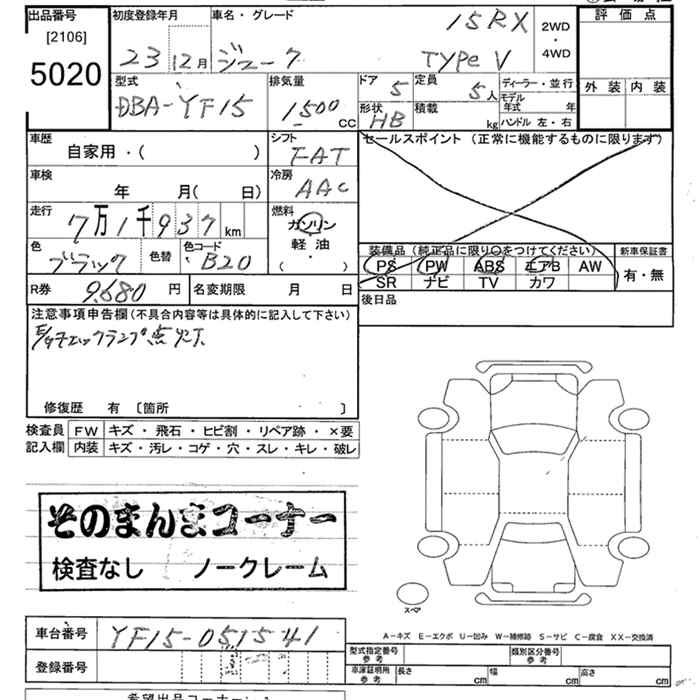 出品番号
[2106]
5020
初度登録年月
23 12月
車名・グレード
15RX
ジューク TYPE V
2WD
・
4WD
評価点
外装 内装
型式
DBA-YF15
排気量
1500 CC
ドア 5
定員 5人
形状 HB
積載 kg
ディーラー・並行
モデル年式 年
ハンドル 左・右
車歴
自家用・( )
シフト
FAT
車検
年 月( 日)
冷房
AAC
走行
7万1千937km
燃料
ガソリン
軽油
( ・ )
色
ブラック
色替
色コード
B20
R券 9,680円
名変期限 月 日
セールスポイント (正常に機能するものに限ります)
装備品 (純正品に限り○をつけてください)
PS PW ABS エアB AW
SR ナビ TV カワ
新車保証書
有・無
後日品
注意事項申告欄(不具合内容等は具体的に記入して下さい)
エックランプ点灯
修復歴 有 〔箇所 〕
検査員 FW キズ・飛石・ヒビ割・リペア跡・×要
記入欄 内装 キズ・汚レ・コゲ・穴・スレ・キレ・破レ
そのまんまコーナー
検査なし ノークレーム
スペア
A-キズ E-エクボ U-凹み W-補修跡 S-サビ C-腐食 XX-交換済
車台番号 YF15-051541
登録番号
型式指定番号 参考
類別区分番号 参考
車庫証明用 参考
長さ cm 幅 cm 高さ cm
希望出品コーナー